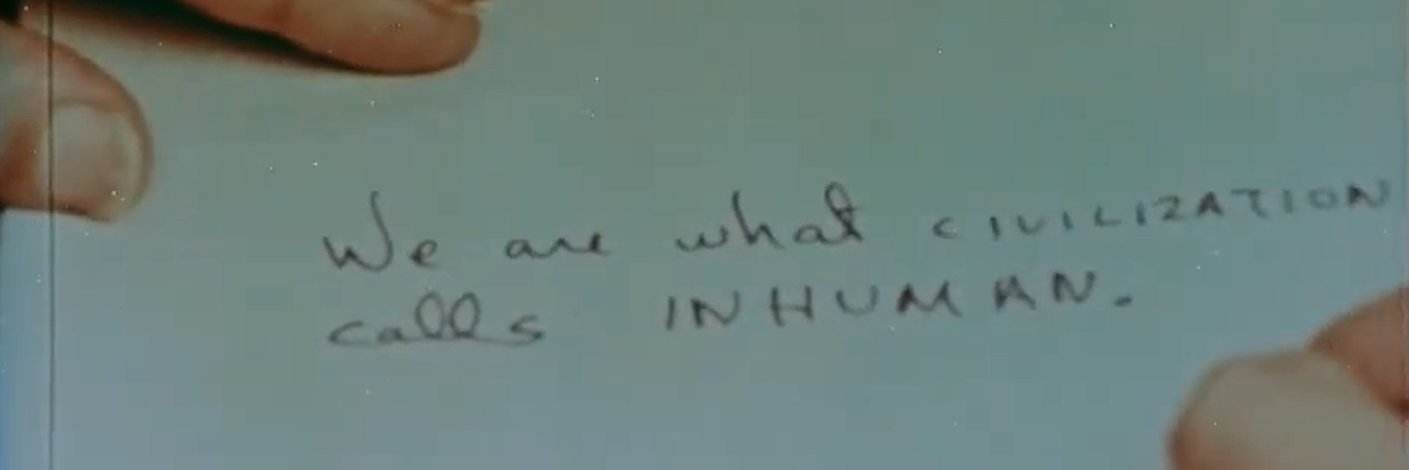 We are what CIVILIZATION
calls INHUMAN.